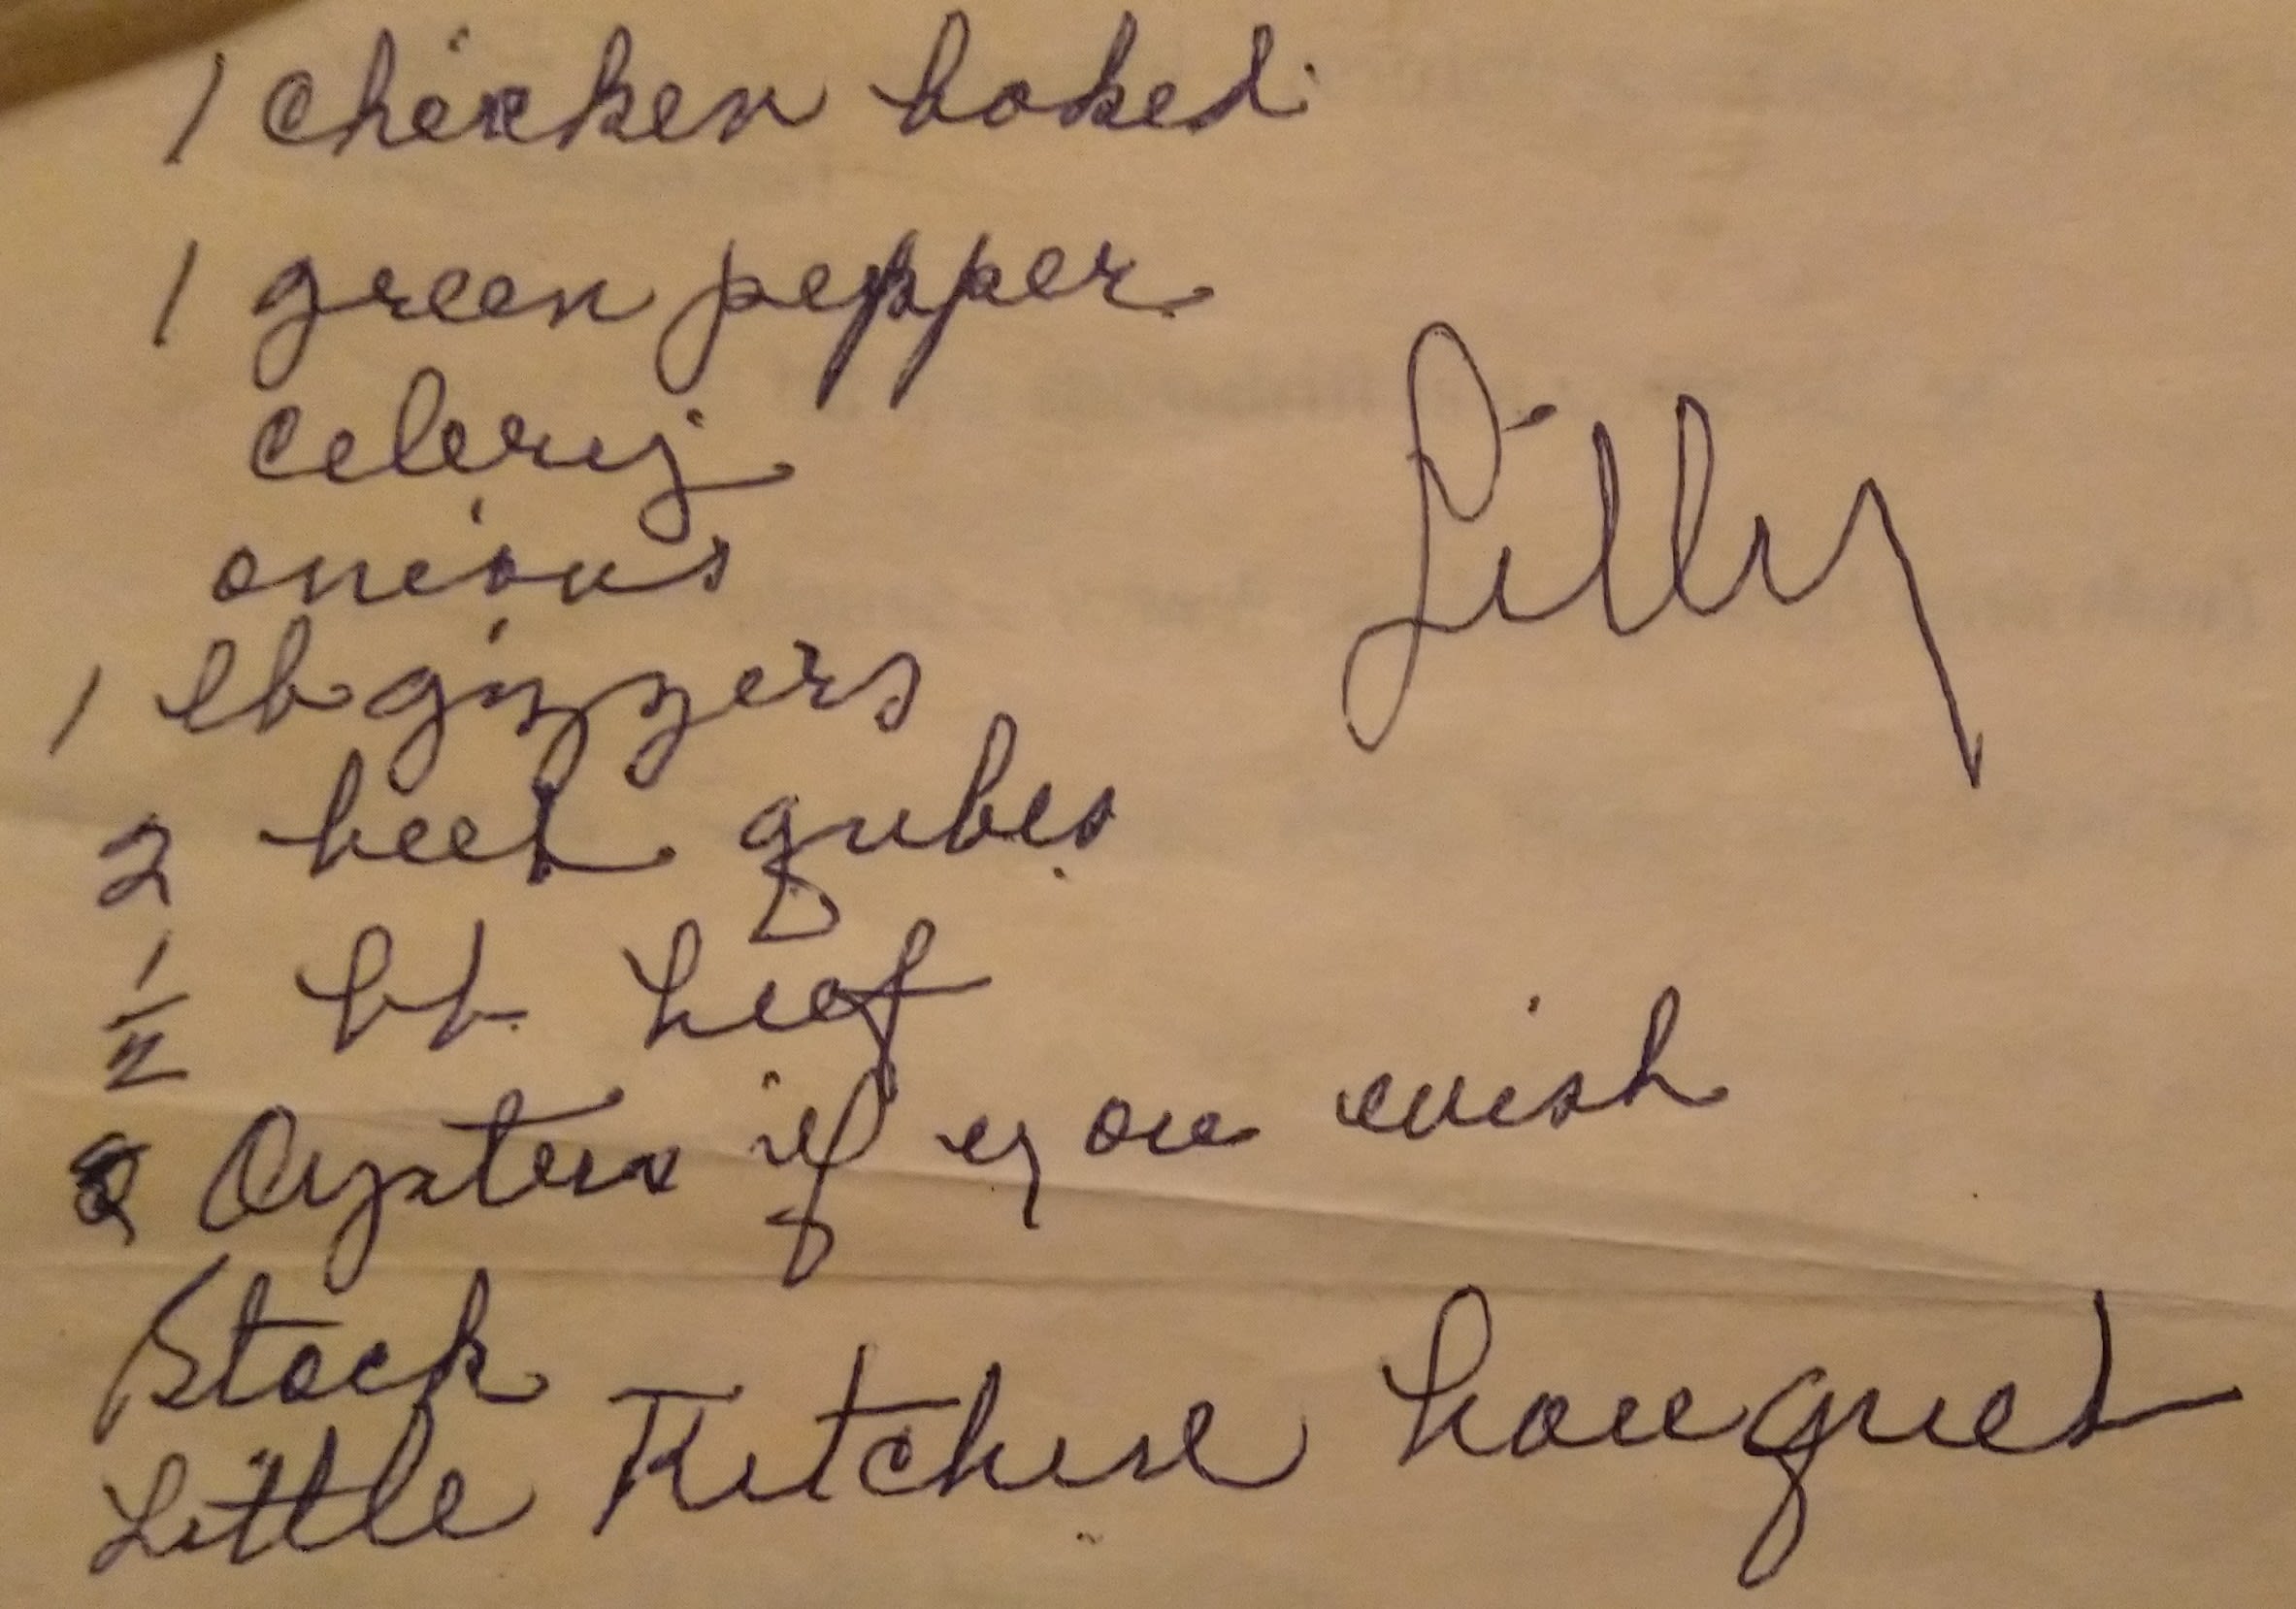 1 chicken baked
1 green pepper
celery
onions
Lilly
1 lb gizzers
2 beef qubes
1/2 lb beef
Oysters if you wish
Stock
Little Kitchen bouquet